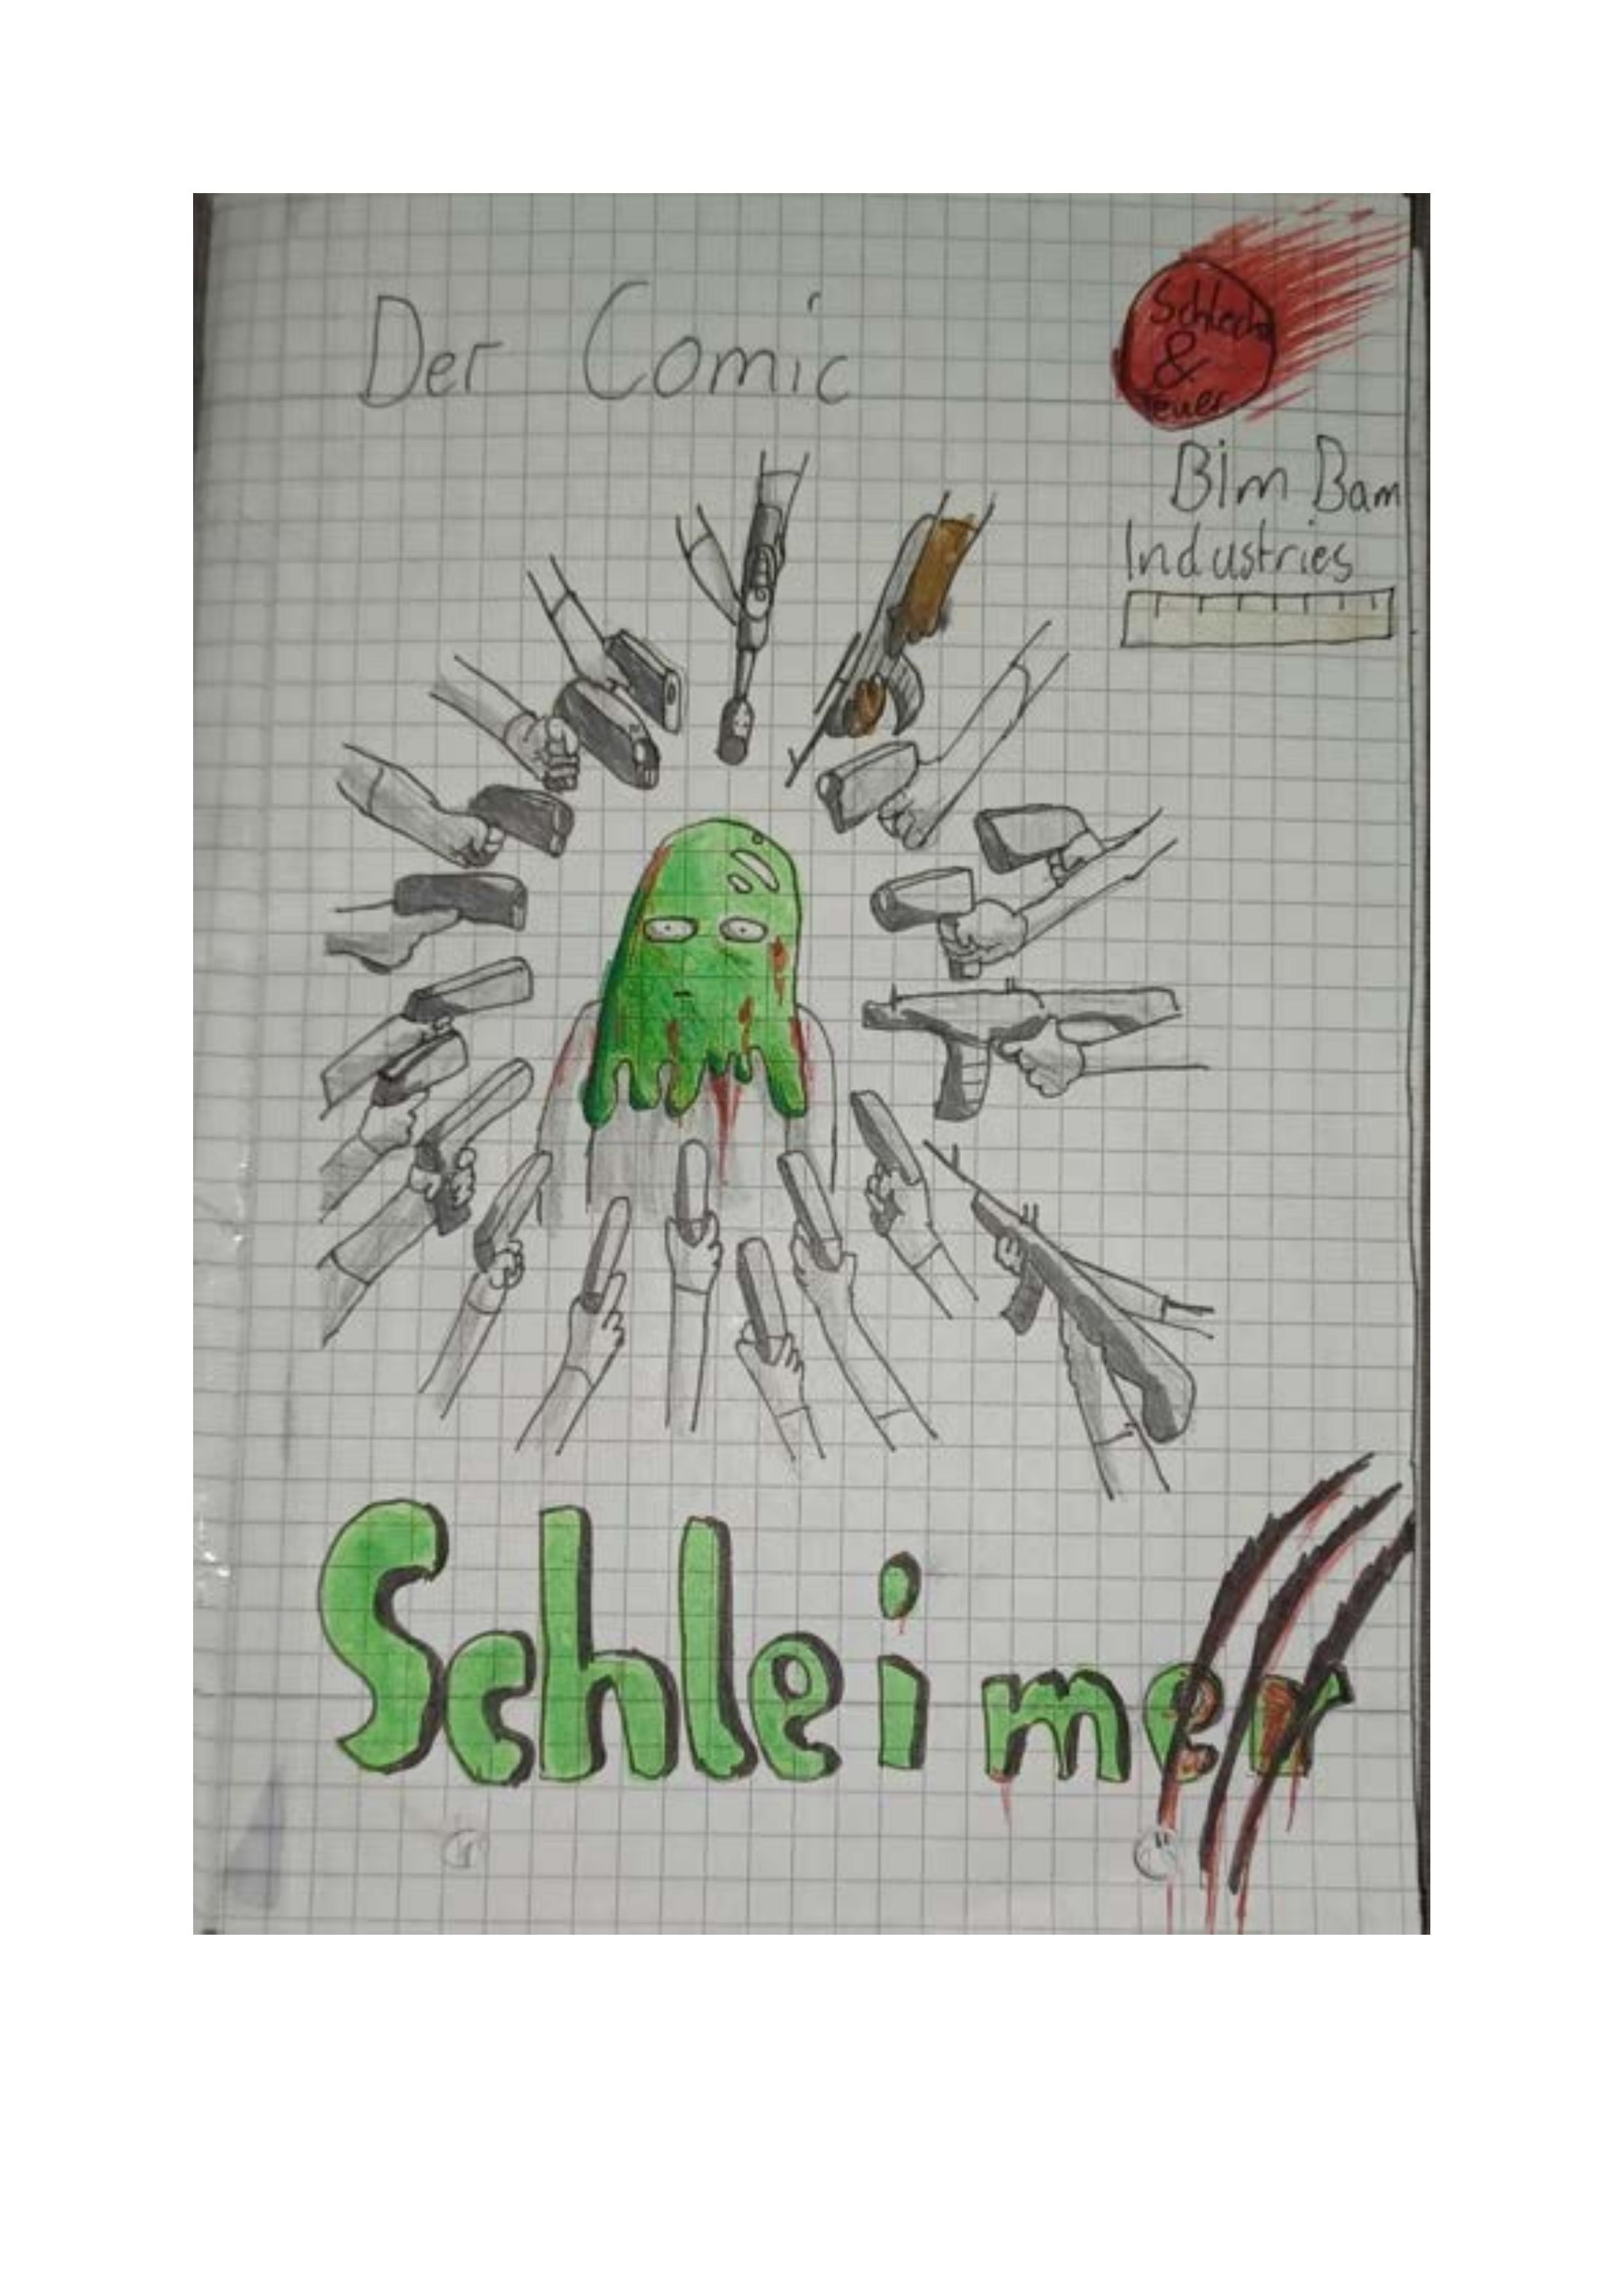 Der Comic
Schlecht
&
Teuer
Bim Bam
Industries
Schleimer